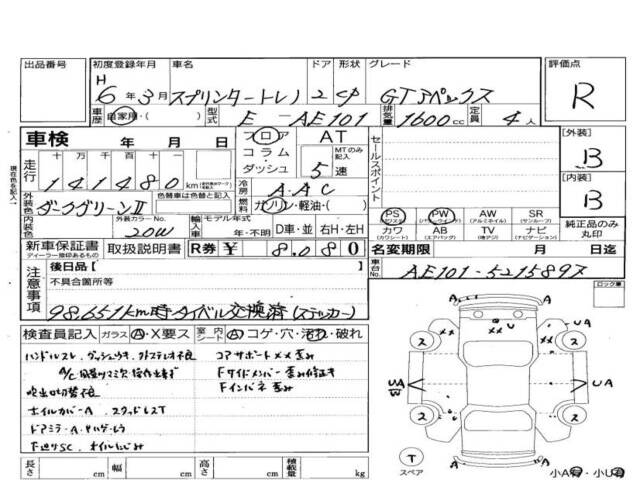 出品番号 初度登録年月 車名 ドア 形状 グレード 評価点
H 6年3月 スプリンタートレノ 2 cp GTアペックス R
車歴 自家用・( ) 型式 E-AE101 排気量 1600cc 定員 4人
車検 年 月 日 フロア コラム・ダッシュ AT MTのみ記入 5速 セールスポイント [外装] B
走行 十万千百十 141480km 冷房 AAC [内装] B
外装色 ダークグリーンII 色替車は色替と記入 燃料 ガソリン・軽油・( )
PS (パワステ) PW (パワーウインド) AW (アルミホイル) SR (サンルーフ) 純正品のみ丸印
カワ (カワシート) AB (エアバッグ) TV (地デジ) ナビ (ナビゲーション)
内装色 外装カラーNo. 20W 輸入車 モデル年式 年・不明 D車・並 右H・左H
新車保証書 ディーラー捺印あるもの 取扱説明書 R券 ¥ 8,080 名変期限 月 日迄
注意事項 後日品[ ] 車台No. AE101-5215897
不具合箇所等
98,651km時タイベル交換済(ステッカー)
ロック車
検査員記入 ガラス A・X要ス 室内シート A コゲ・穴・汚れ・破れ
ハンドルスレ、ダッシュウキ、外ステレオ不良 コアサポートメメ歪み
Fサイドメンバー歪み修正キ
吹出口切替不良 Fインパネ歪み
ホイルカバーA、スタッドレスT
ドアミラーA・ヤハゲ・レう
下廻りSC、オイルにじみ
2 2 2 2
UA W
UA
A A A A U
T
スペア
小A有・小U有
長さ cm 幅 cm 高さ cm 積載量 kg
現在色を記入→